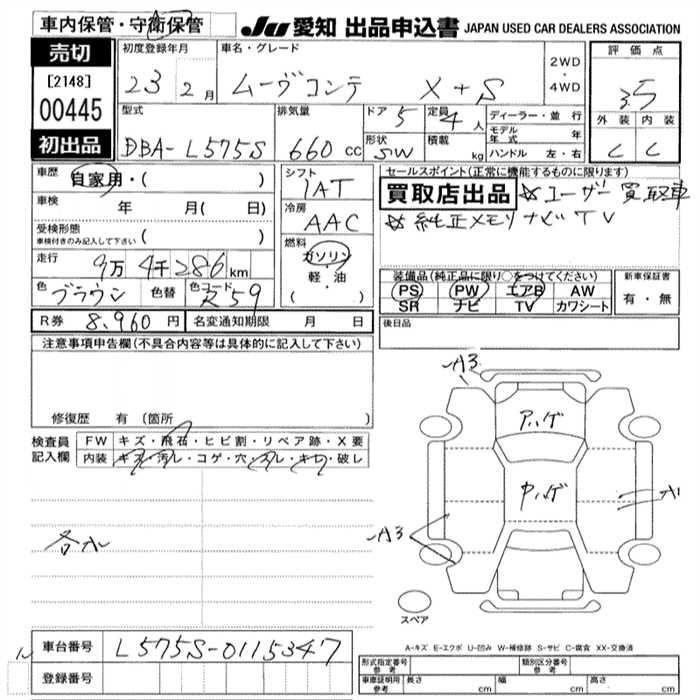 車内保管・守衛保管
JU 愛知 出品申込書 JAPAN USED CAR DEALERS ASSOCIATION
売切
[2148]
00445
初出品
初度登録年月
23 2月
車名・グレード
ムーヴコンテ X+S
2WD
・
4WD
評価点
3.5
外装 内装
C C
型式
DBA-L575S
排気量
660 cc
ドア 5
形状 SW
定員 4人
積載 kg
ディーラー・並行
モデル年式 年
ハンドル 左・右
車歴 自家用・( )
車検 年 月( 日)
受検形態
車検付きのみ記入して下さい ( )
走行 9万4千286km
色 ブラウン 色替 色コード R59
シフト
IAT
冷房
AAC
燃料
ガソリン
・
軽・油
( )
セールスポイント(正常に機能するものに限ります)
買取店出品 ☆ユーザー買取車
☆純正メモリナビTV
装備品(純正品に限り○をつけてください)
PS PW エアB AW
SR ナビ TV カワシート
新車保証書
有・無
R券 8,960円 名変通知期限 月 日
後日品
注意事項申告欄(不具合内容等は具体的に記入して下さい)
修復歴 有(箇所 )
検査員
記入欄
FW キズ・飛石・ヒビ割・リペア跡・X要
内装 キズ・汚レ・コゲ・穴・スレ・キレ・破レ
A3
アハゲ
中ハゲ
A1
A3
スペア
A-キズ E-エクボ U-凹み W-補修跡 S-サビ C-腐食 XX-交換済
車台番号 L575S-0115347
登録番号
形式指定番号
参考
類別区分番号
参考
車庫証明用
参考
長さ cm 幅 cm 高さ cm